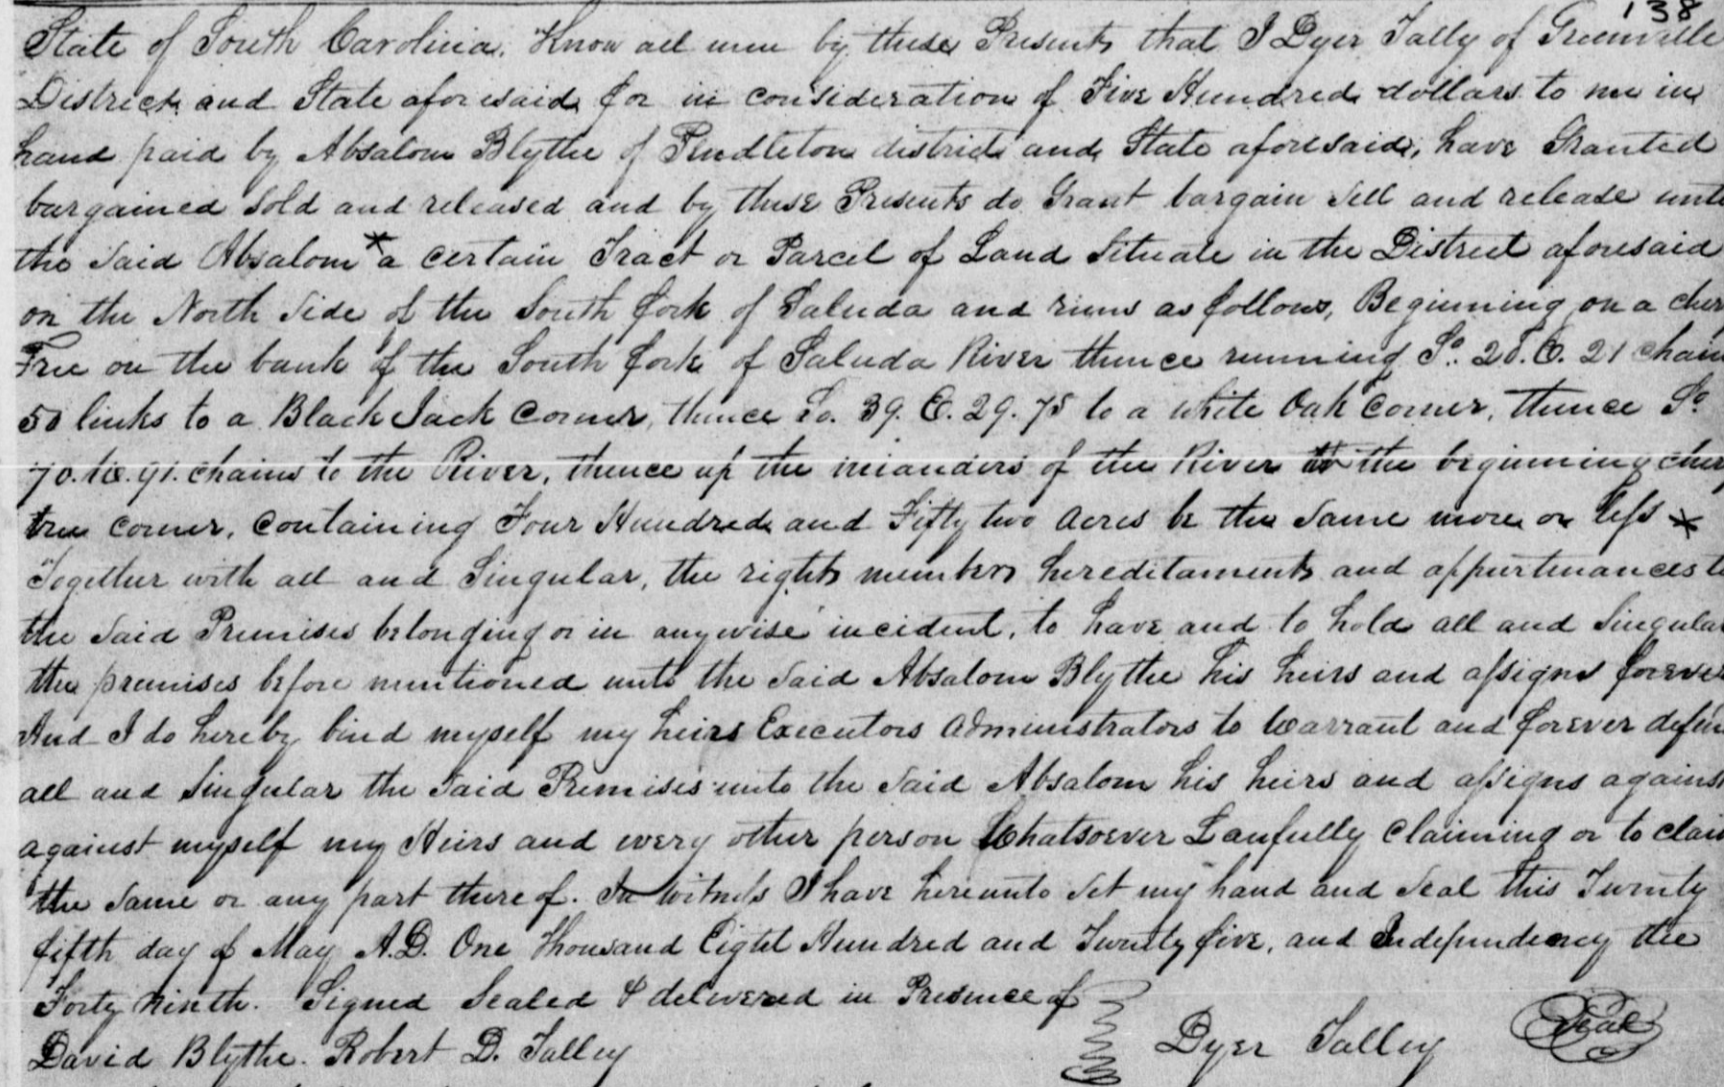 138
State of South Carolina. Know all men by these Presents that I Dyer Tally of Greenville
District and State aforesaid for in consideration of Five Hundred dollars to me in
hand paid by Absalom Blythe of Pendleton district and State aforesaid, have Granted
bargained Sold and released and by these Presents do Grant bargain Sell and release unto
the Said Absalom * a certain Tract or Parcel of Land Situate in the District aforesaid
on the North Side of the South fork of Saluda and runs as follows, Beginning on a cher
Tree on the bank of the South fork of Saluda River thence running So. 28. E. 21 chain
50 links to a Black Jack Corner, thence So. 39. E. 29. 75 to a white Oak Corner, thence So
70. W. 91. chains to the River, thence up the meanders of the River to the beginning cher
tree corner, containing Four Hundred and Fifty two Acres be the Same more or less *
Together with all and Singular, the rights members hereditaments and appurtenances to
the Said Premises belonging or in anywise incident, to have and to hold all and Singular
the premises before mentioned unto the Said Absalom Blythe his heirs and assigns forever
And I do hereby bind myself my heirs Executors Administrators to Warrant and forever defen
all and Singular the Said Premises unto the Said Absalom his heirs and assigns against
against myself my Heirs and every other person Whatsoever Lawfully Claiming or to clai
the Same or any part thereof. In Witness I have hereunto Set my hand and Seal this Twenty
fifth day of May A.D. One Thousand Eight Hundred and Twenty five, and Independency the
Forty ninth. Signed Sealed & delivered in Presence of
David Blythe. Robert D. Talley Dyer Talley Seal